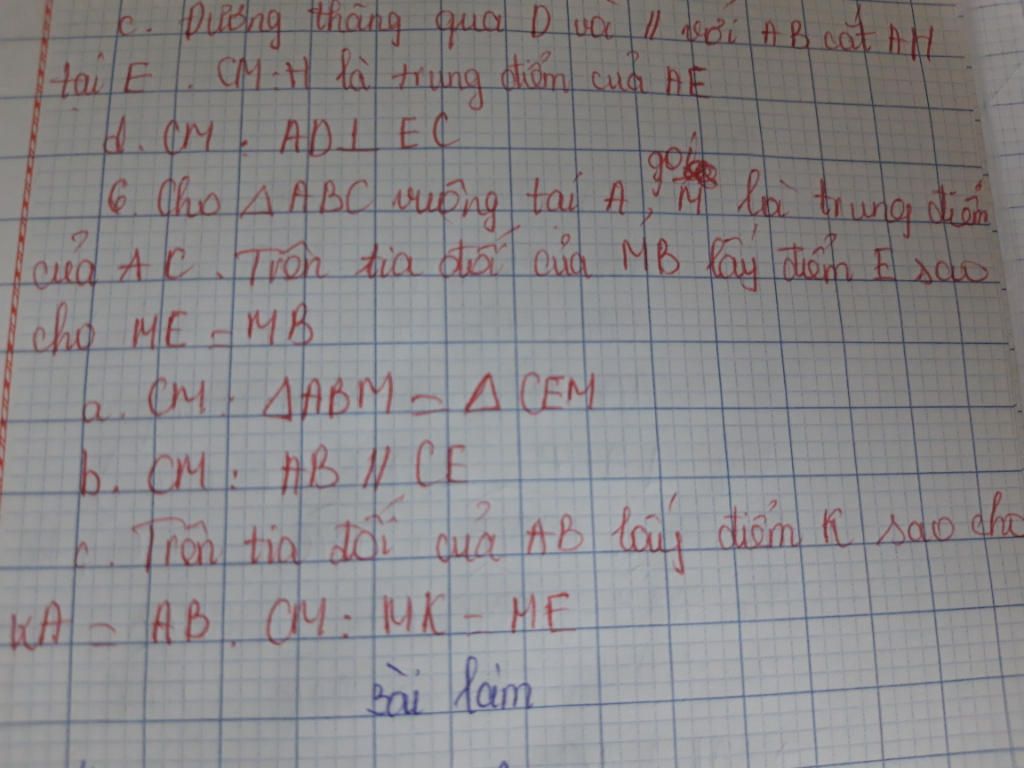 c. Đường thẳng qua D và // với AB cắt AH
tại E. CM: H là trung điểm của AE
d. CM: AD⊥EC
6. Cho △ABC vuông tại A, gọi M là trung điểm
của AC. Trên tia đối của MB lấy điểm E sao
cho ME = MB
a. CM: △ABM = △CEM
b. CM: AB // CE
c. Trên tia đối của AB lấy điểm K sao cho
KA = AB. CM: MK = ME
Bài làm